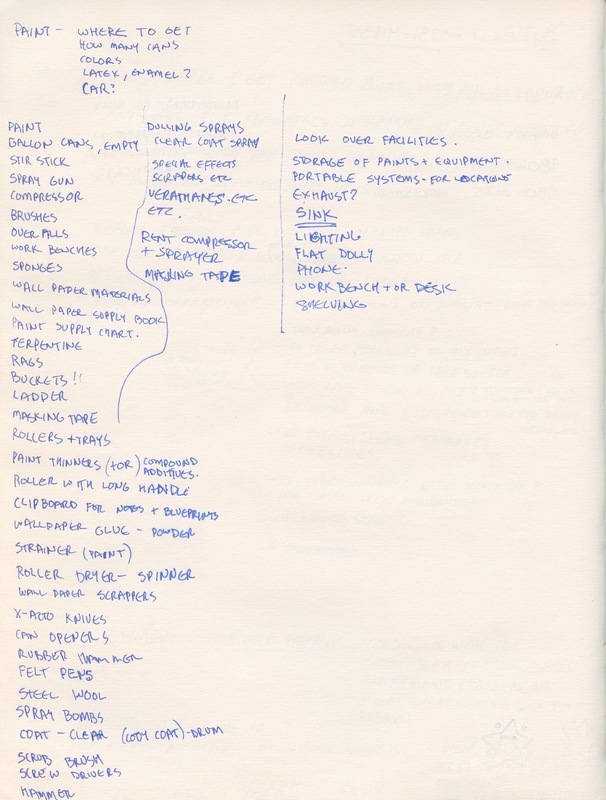 PAINT - WHERE TO GET
HOW MANY CANS
COLORS
LATEX, ENAMEL?
CAR?
PAINT
GALLON CANS, EMPTY
STIR STICK
SPRAY GUN
COMPRESSOR
BRUSHES
OVERALLS
WORK BENCHES
SPONGES
WALL PAPER MATERIALS
WALL PAPER SUPPLY BOOK
PAINT SUPPLY CHART.
TERPENTINE
RAGS
BUCKETS!!
LADDER
MASKING TAPE
ROLLERS + TRAYS
PAINT THINNERS (+OR) COMPOUND
ADDITIVES.
ROLLER WITH LONG HANDLE
CLIPBOARD FOR NOTES + BLUEPRINTS
WALLPAPER GLUE - POWDER
STRAINER (PAINT)
ROLLER DRYER - SPINNER
WALL PAPER SCRAPPERS
X-ACTO KNIVES
CAN OPENERS
RUBBER HAMMER
FELT PENS
STEEL WOOL
SPRAY BOMBS
COAT - CLEAR (CODY COAT) - DRUM
SCRUB BRUSH
SCREW DRIVERS
HAMMER
DULLING SPRAYS
CLEAR COAT SPRAY
SPECIAL EFFECTS
SCRAPERS ETC
VERATHANES - ETC
ETC.
RENT COMPRESSOR
+ SPRAYER
MASKING TAPE
LOOK OVER FACILITIES.
STORAGE OF PAINTS + EQUIPMENT.
PORTABLE SYSTEMS - FOR LOCATIONS
EXHAUST?
SINK
LIGHTING
FLAT DOLLY
PHONE.
WORK BENCH + OR DESK
SHELVING